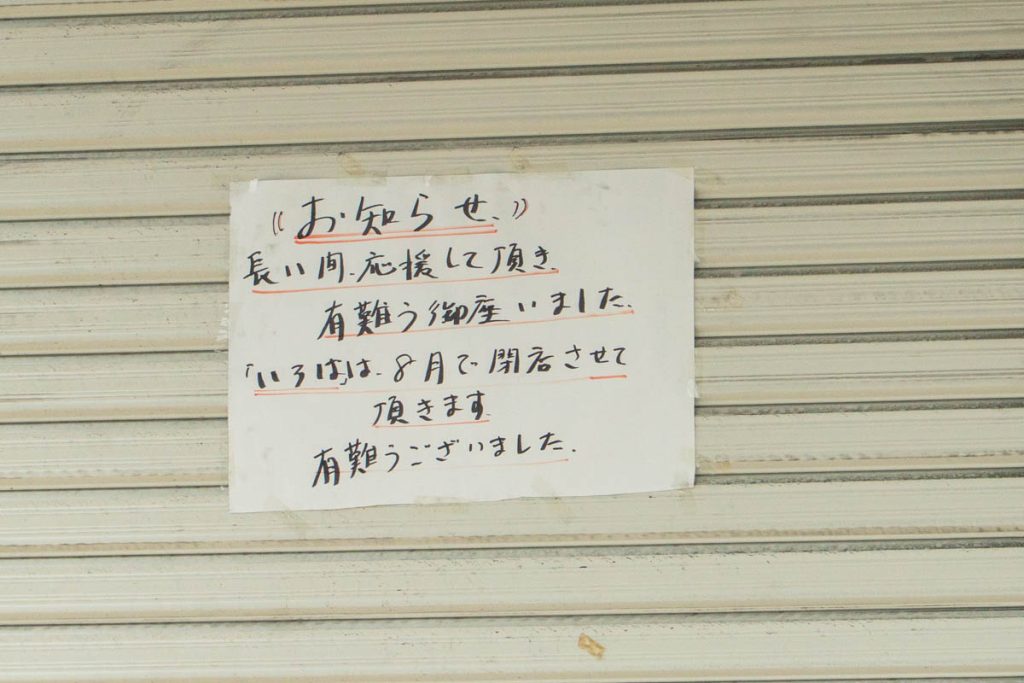 《お知らせ、》
長い間、応援して頂き、
有難う御座いました、
「いろは」は、8月で閉店させて
頂きます
有難うございました、